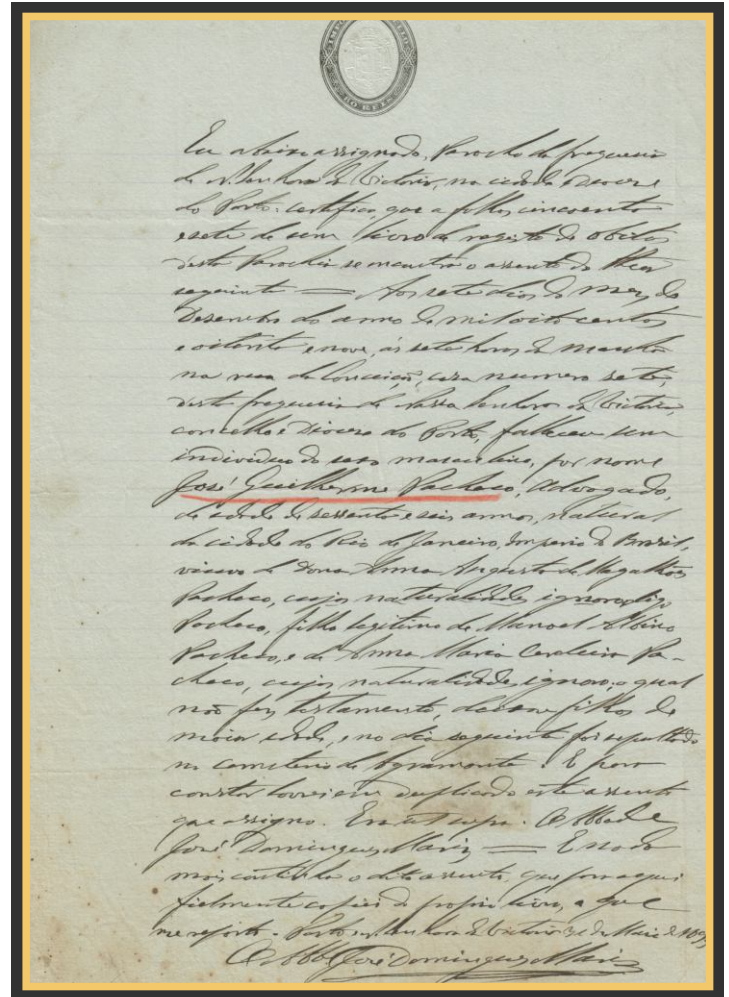 IMPOSTO DO SELLO
60 REIS
Eu abaixo assignado, Parocho da freguesia
de N. Senhora da Victoria, na cidade e Diocese
do Porto: certifico, que a folhas cincoenta
e sete de um livro de registo de obitos
desta Parochia se encontra o assento do theor
seguinte = Aos sete dias do mez de
Dezembro do anno de mil oito centos
e oitenta e nove, ás sete horas da manhã
na rua da Conceição, casa numero sete,
desta freguesia de Nossa Senhora da Victoria,
concelho e Diocese do Porto, falleceu um
individuo do sexo masculino, por nome
José Guilherme Pacheco, Advogado,
de idade de sessenta e seis annos, natural
da cidade do Rio de Janeiro, Imperio do Brazil,
viuvo de Dona Anna Augusta de Magalhães
Pacheco, cuja naturalidade ignoro, digo
Pacheco, filho legitimo de Manoel Albino
Pacheco, e de Anna Maria Cordeiro Pa-
checo, cujas naturalidades ignoro; o qual
não fez testamento, deixou filhos de
maior edade, e no dia seguinte foi sepultado
no cemiterio de Agramonte. E para
constar lavrei em duplicado este assento
que assigno. Era ut supra. O Abbade
José Domingues Mariz = E nada
mais continha o dito assento, que para aqui
fielmente copiei do proprio livro, a que
me reporto. Porto e Senhora da Victoria 31 de Maio de
O Abb.e José Domingues Mariz